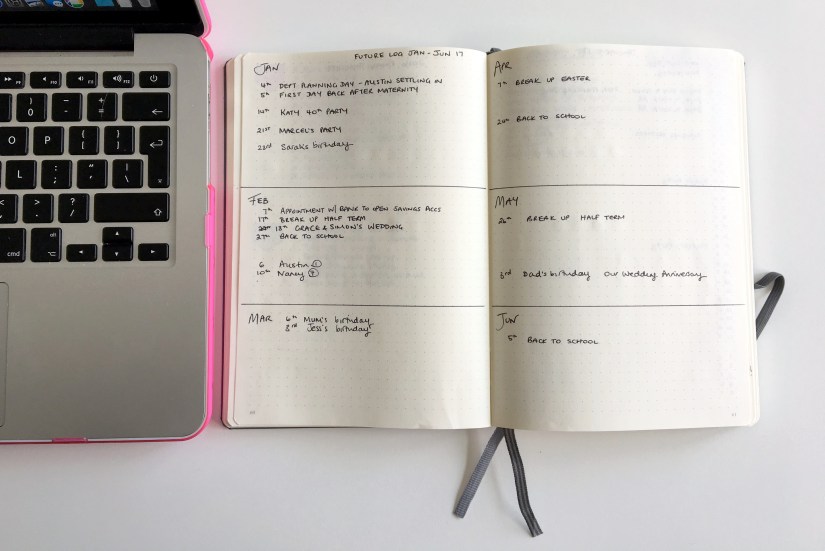 FUTURE LOG JAN - JUN 17
JAN
4th DEPT PLANNING DAY - AUSTIN SETTLING IN
5th FIRST DAY BACK AFTER MATERNITY
14th KATY 40th PARTY
21st MARCEL'S PARTY
23rd Sarah's birthday
FEB
7th APPOINTMENT W/ BANK TO OPEN SAVINGS ACCS
17th BREAK UP HALF TERM
18th GRACE & SIMON'S WEDDING
27th BACK TO SCHOOL
6 Austin 1
10th Nancy
MAR 6th Mum's birthday
8rd Jess's birthday
APR
7th BREAK UP EASTER
24th BACK TO SCHOOL
MAY
26th BREAK UP HALF TERM
3rd Dad's birthday Our Wedding Anniversary
JUN
5th BACK TO SCHOOL